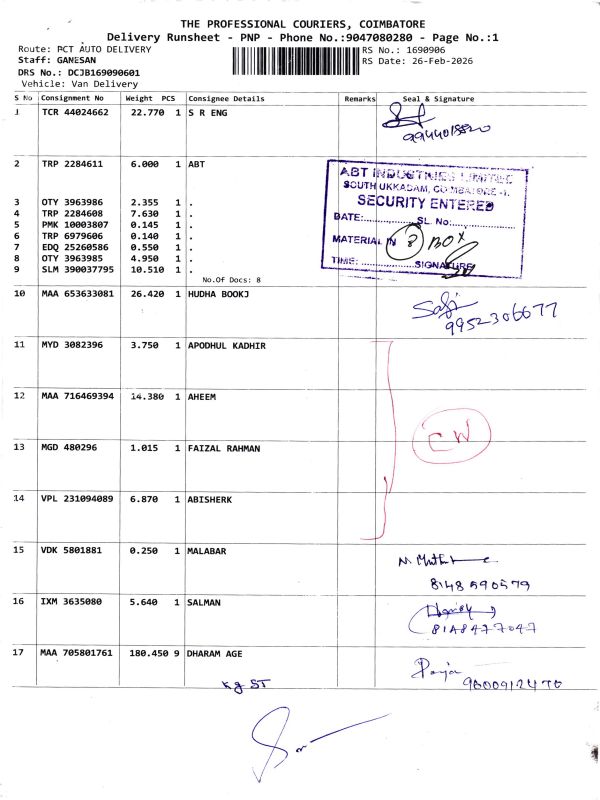 THE PROFESSIONAL COURIERS, COIMBATORE
Delivery Runsheet - PNP - Phone No.:9047080280 - Page No.:1
Route: PCT AUTO DELIVERY
RS No.: 1690906
Staff: GANESAN
RS Date: 26-Feb-2026
DRS No.: DCJB169090601
Vehicle: Van Delivery
S No Consignment No Weight PCS Consignee Details Remarks Seal & Signature
1 TCR 44024662 22.770 1 S R ENG
2 TRP 2284611 6.000 1 ABT
ABT INDUSTRIES LIMITED
SOUTH UKKADAM, COIMBATORE-1.
SECURITY ENTERED
DATE:.............SL. No:.............
MATERIAL IN 8 BOX
TIME:.............SIGNATURE
3 OTY 3963986 2.355 1 .
4 TRP 2284608 7.630 1 .
5 PMK 10003807 0.145 1 .
6 TRP 6979606 0.140 1 .
7 EDQ 25260586 0.550 1 .
8 OTY 3963985 4.950 1 .
9 SLM 390037795 10.510 1 .
No.Of Docs: 8
10 MAA 653633081 26.420 1 HUDHA BOOKJ
9952306677
11 MYD 3082396 3.750 1 APODHUL KADHIR
12 MAA 716469394 14.380 1 AHEEM
CW
13 MGD 480296 1.015 1 FAIZAL RAHMAN
14 VPL 231094089 6.870 1 ABISHERK
15 VDK 5801881 0.250 1 MALABAR
8148590579
16 IXM 3635080 5.640 1 SALMAN
8148477047
17 MAA 705801761 180.450 9 DHARAM AGE
9600912470
kg ST